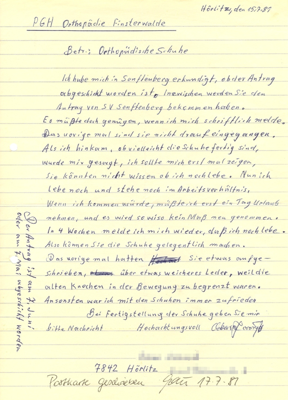 Hörlitz, den 15.7.81
PGH Orthopädie Finsterwalde
Betr.: Orthopädische Schuhe
Ich habe mich in Senftenberg erkundigt, ob der Antrag
abgeschickt worden ist, inzwischen werden Sie den
Antrag von SV Senftenberg bekommen haben.
Es müßte doch genügen, wenn ich mich schriftlich melde.
Das vorige mal sind sie nicht darauf eingegangen.
Als ich hinkam, ob vielleicht die Schuhe fertig sind,
wurde mir gesagt, ich sollte mich erst mal zeigen,
Sie könnten nicht wissen ob ich noch lebe. Nun ich
lebe noch und stehe noch im Arbeitsverhältnis,
Wenn ich kommen würde, müßte ich erst ein Tag Urlaub
nehmen, und es wird so wieso kein Maß mehr genommen.
In 4 Wochen melde ich mich wieder, daß ich noch lebe.
Also können Sie die Schuhe gelegentlich machen.
Das vorige mal hatten Sie etwas aufge-
schrieben, über etwas weicheres Leder, weil die
alten Knochen in der Bewegung zu begrenzt waren.
Ansonsten war ich mit den Schuhen immer zufrieden
Bei Fertigstellung der Schuhe geben Sie mir
bitte Nachricht Hochachtungsvoll
7842 Hörlitz
Postkarte geschrieben 17.7.81
Der Antrag ist am 7. Juni
oder am 7. Mai abgeschickt worden